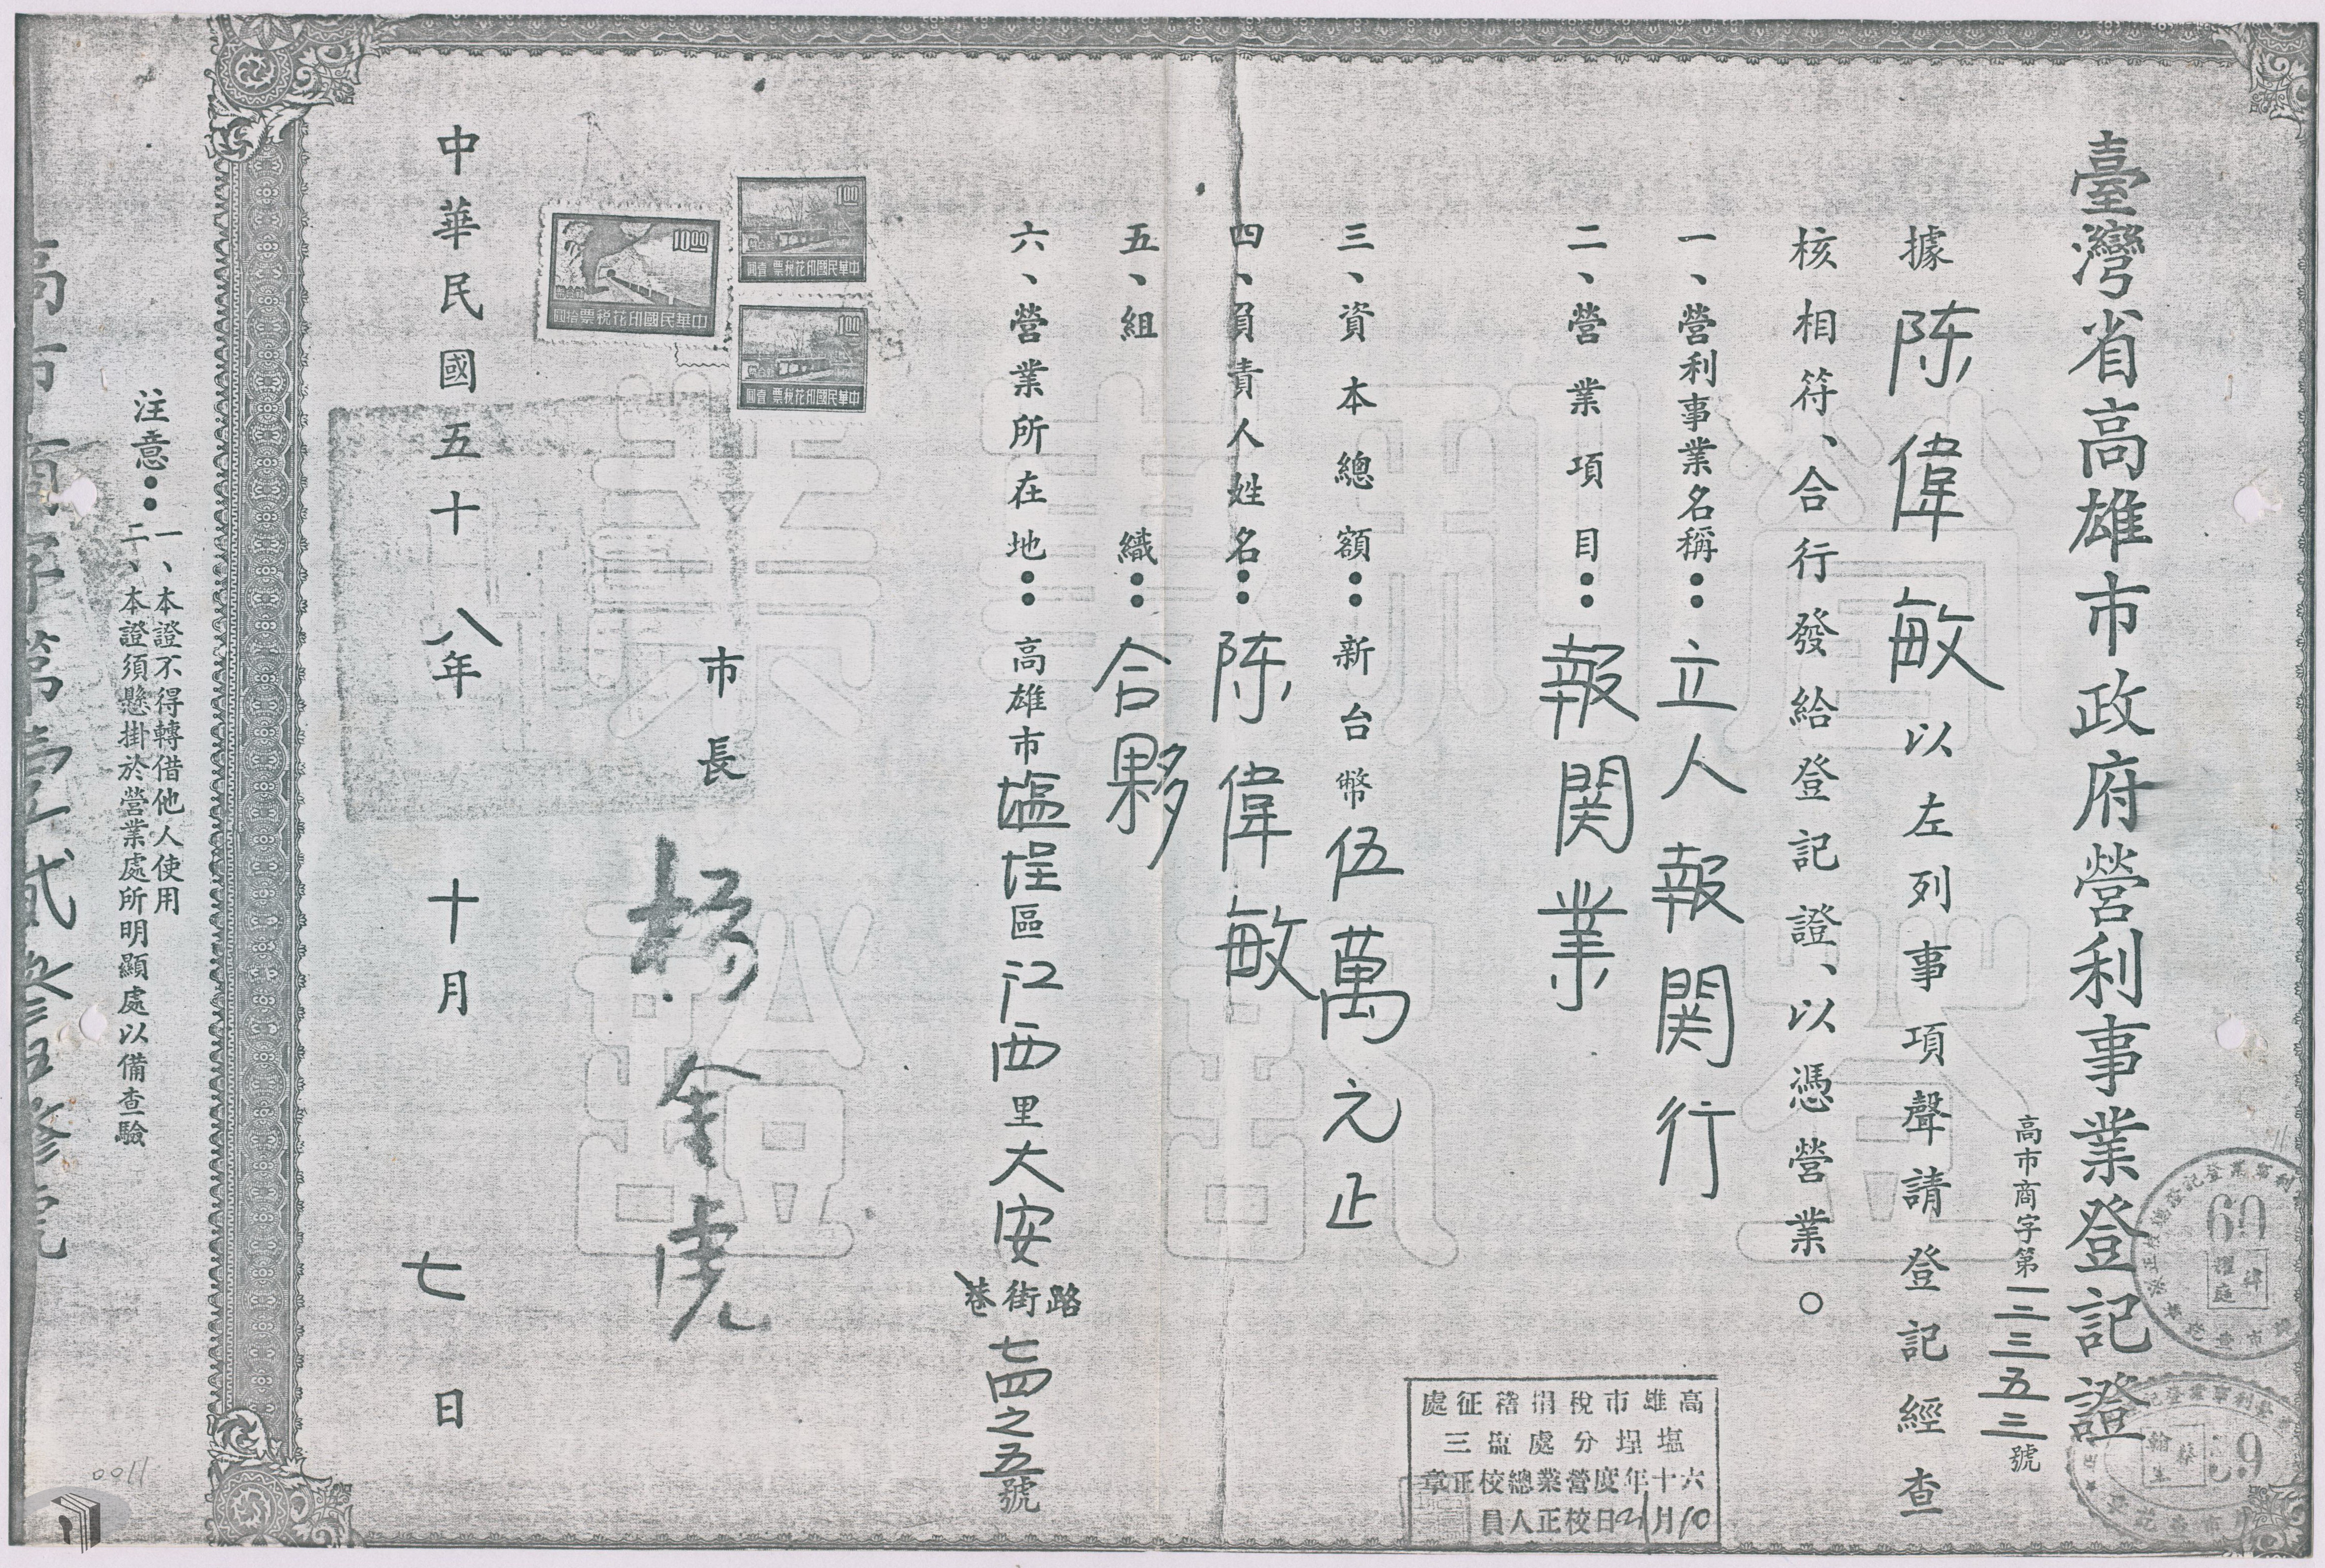 臺灣省高雄市政府營利事業登記證
高市商字第一二三五三號
據陈偉敏以左列事項聲請登記經查
核相符、合行發給登記證、以憑營業。
一、營利事業名稱：立人報関行
二、營業項目：報関業
三、資本總額：新台幣伍萬元正
四、負責人姓名：陈偉敏
五、組織：合夥
六、營業所在地：高雄市塩埕區江西里大安路街巷七四之五號
市長 楊金虎
中華民國五十八年十月七日
注意：
一、本證不得轉借他人使用
二、本證須懸掛於營業處所明顯處以備查驗
營利事業登記證
10.00
中華民國印花稅票 拾圓
1.00
中華民國印花稅票 壹圓
1.00
中華民國印花稅票 壹圓
高雄市稅捐稽征處
塩埕分處塩三
六十年度營業總校正章
10月21日校正人員
60
59
0011